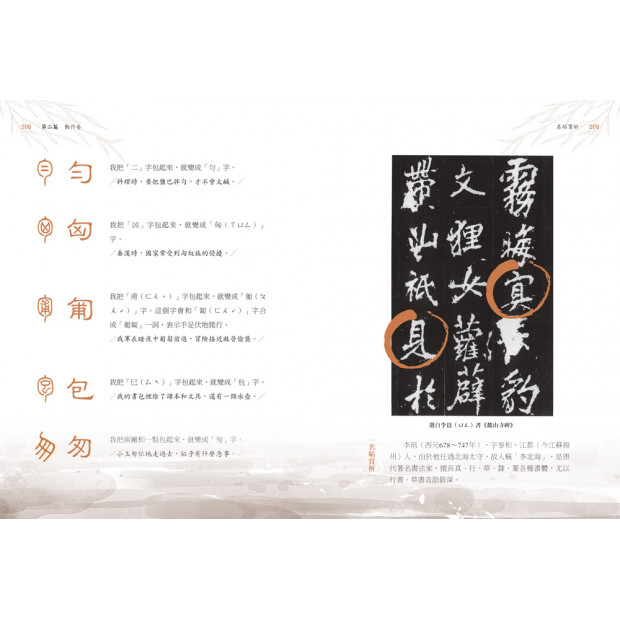 208 第二篇 動作卷
勻 我把「二」字包起來，就變成「勻」字。
／料理時，要把鹽巴拌勻，才不會太鹹。／
匈 我把「凶」字包起來，就變成「匈（ㄒㄩㄥ）」
字。
／秦漢時，國家常受到匈奴族的侵擾。／
匍 我把「甫（ㄈㄨˇ）」字包起來，就變成「匍（ㄆ
ㄨˊ）」字，這個字會和「匐（ㄈㄨˊ）」字合
成「匍匐」一詞，表示手足伏地爬行。
／我軍在暗夜中匍匐前進，冒險接近敵營偷襲。／
包 我把「巳（ㄙˋ）」字包起來，就變成「包」字。
／我的書包裡除了課本和文具，還有一個水壺。／
匆 我把兩撇和一點包起來，就變成「匆」字。
／小玉匆忙地走過去，似乎有什麼急事。／
名帖賞析 209
霧晦冥
豹
文狸女蘿薜
帶山祇見於
選自李邕（ㄩㄥ）書《麓山寺碑》
名帖賞析
李邕（西元678～747年），字泰和，江都（今江蘇揚
州）人，由於他任過北海太守，故人稱「李北海」，是唐
代著名書法家，擅長真、行、草、隸、篆各種書體，尤以
行書、草書造詣最深。